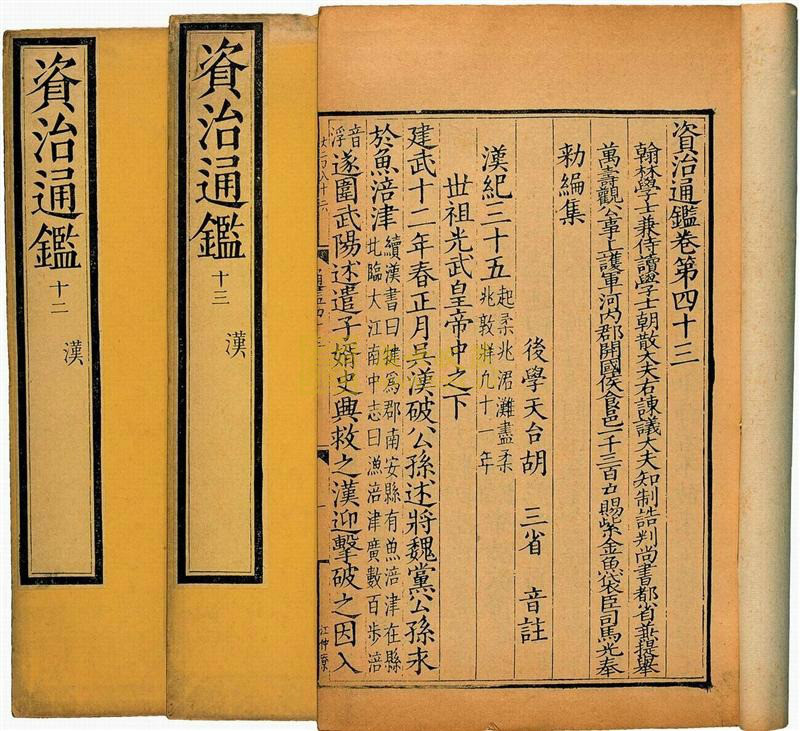 資治通鑑卷第四十三
翰林學士兼侍讀學士朝散大夫右諫議大夫知制誥判尚書都省兼提舉
萬壽觀公事上護軍河內郡開國侯食邑一千三百戶賜紫金魚袋臣司馬光奉
勑編集
後學天台胡 三省 音註
漢紀三十五
起柔兆涒灘盡柔
兆敦牂凡十一年
世祖光武皇帝中之下
建武十二年春正月吳漢破公孫述將魏黨公孫永
於魚涪津
續漢書曰犍為郡南安縣有魚涪津在縣
北臨大江南中志曰漁涪津廣數百步涪
音
浮
遂圍武陽述遣子婿史興救之漢迎擊破之因入
資治通鑑 十三 漢
資治通鑑 十二 漢